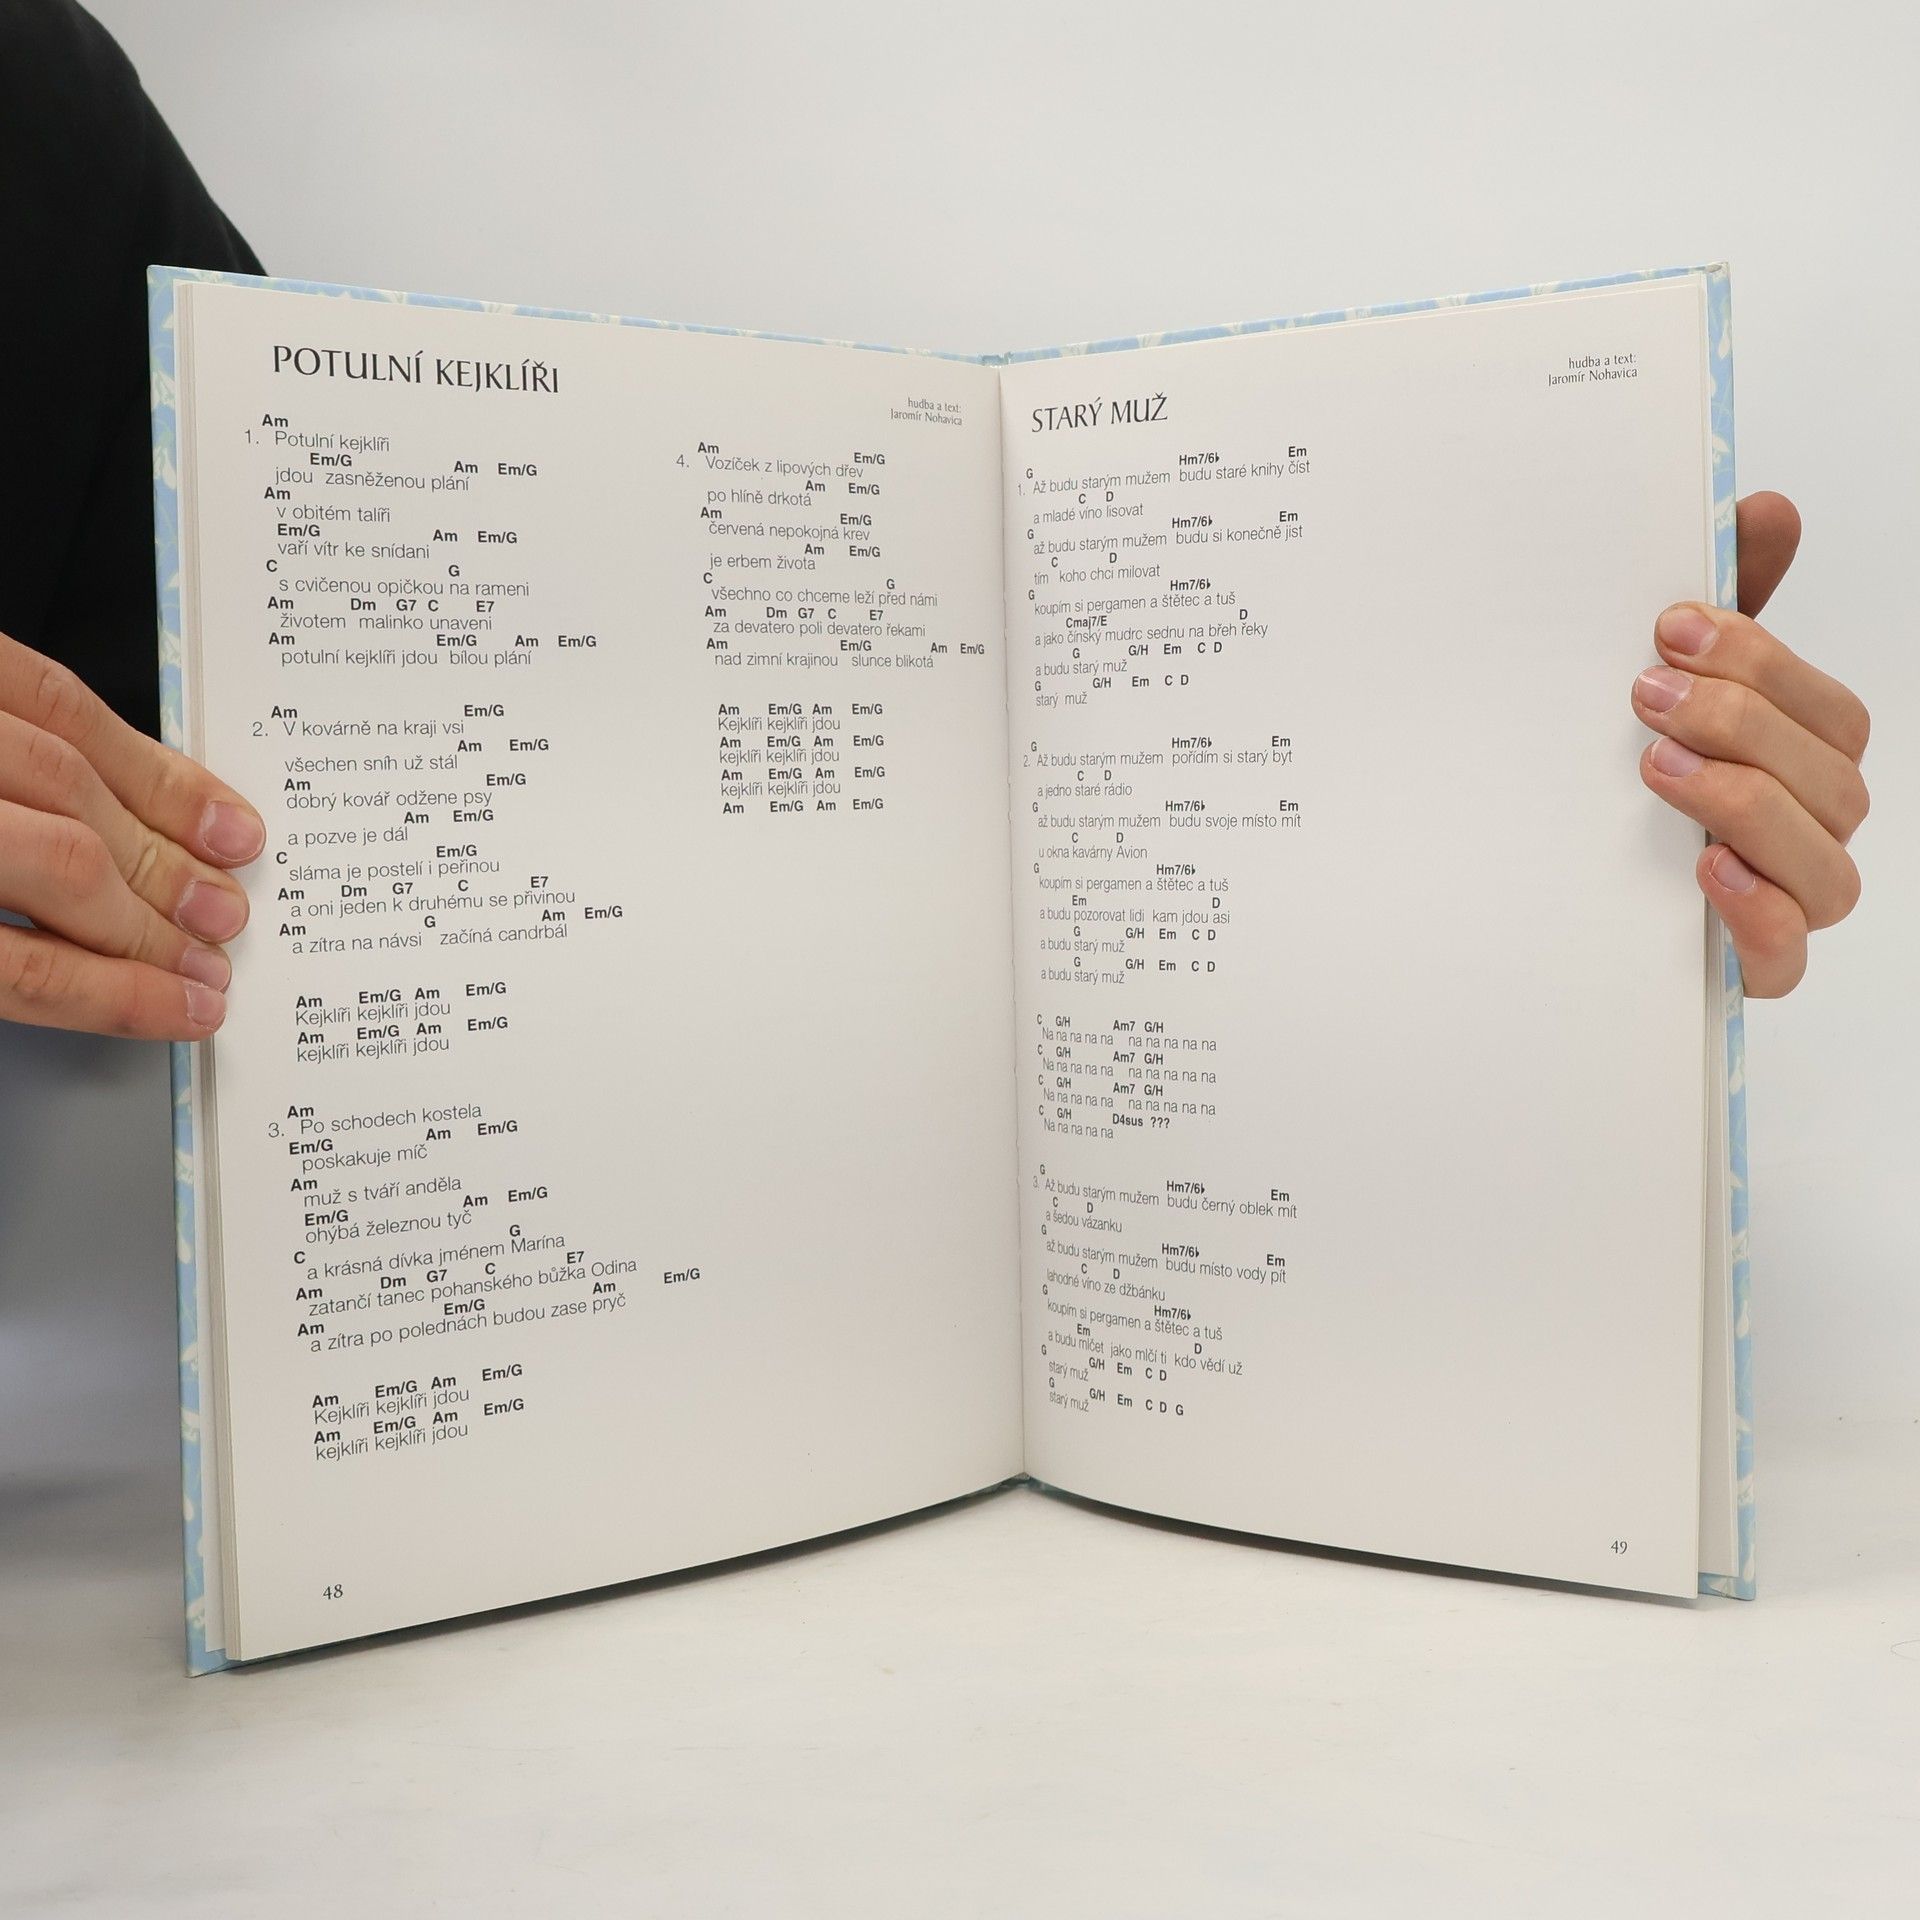 POTULNÍ KEJKLÍŘI
hudba a text:
Jaromír Nohavica
Am
1. Potulní kejklíři
Em/G Am Em/G
jdou zasněženou plání
Am
v obitém talíři
Em/G Am Em/G
vaří vítr ke snídani
C G
s cvičenou opičkou na rameni
Am Dm G7 C E7
životem malinko unaveni
Am Em/G Am Em/G
potulní kejklíři jdou bílou plání
Am Em/G
2. V kovárně na kraji vsi
Am Em/G
všechen sníh už stál
Am Em/G
dobrý kovář odžene psy
Am Em/G
a pozve je dál
C Em/G
sláma je postelí i peřinou
Am Dm G7 C E7
a oni jeden k druhému se přivinou
Am G Am Em/G
a zítra na návsi začíná candrbál
Am Em/G Am Em/G
Kejklíři kejklíři jdou
Am Em/G Am Em/G
kejklíři kejklíři jdou
Am
3. Po schodech kostela
Em/G Am Em/G
poskakuje míč
Am
muž s tváří anděla
Em/G Am Em/G
ohýbá železnou tyč
C G
a krásná dívka jménem Marína
Am Dm G7 C E7
zatančí tanec pohanského bůžka Odina
Am Em/G Am Em/G
a zítra po polednách budou zase pryč
Am Em/G Am Em/G
Kejklíři kejklíři jdou
Am Em/G Am Em/G
kejklíři kejklíři jdou
Am Em/G
4. Vozíček z lipových dřev
Am Em/G
po hlíně drkotá
Am Em/G
červená nepokojná krev
Am Em/G
je erbem života
C G
všechno co chceme leží před námi
Am Dm G7 C E7
za devatero poli devatero řekami
Am Em/G Am Em/G
nad zimní krajinou slunce blikotá
Am Em/G Am Em/G
Kejklíři kejklíři jdou
Am Em/G Am Em/G
kejklíři kejklíři jdou
Am Em/G Am Em/G
kejklíři kejklíři jdou
Am Em/G Am Em/G
48
hudba a text:
Jaromír Nohavica
STARÝ MUŽ
G Hm7/6♭ Em
1. Až budu starým mužem budu staré knihy číst
C D
a mladé víno lisovat
G Hm7/6♭ Em
až budu starým mužem budu si konečně jist
C D
tím koho chci milovat
G Hm7/6♭
koupím si pergamen a štětec a tuš
Cmaj7/E D
a jako čínský mudrc sednu na břeh řeky
G G/H Em C D
a budu starý muž
G G/H Em C D
starý muž
G Hm7/6♭ Em
2. Až budu starým mužem pořídím si starý byt
C D
a jedno staré rádio
G Hm7/6♭ Em
až budu starým mužem budu svoje místo mít
C D
u okna kavárny Avion
G Hm7/6♭
koupím si pergamen a štětec a tuš
Em D
a budu pozorovat lidi kam jdou asi
G G/H Em C D
a budu starý muž
G G/H Em C D
a budu starý muž
C G/H Am7 G/H
Na na na na na na na na na na
C G/H Am7 G/H
Na na na na na na na na na na
C G/H Am7 G/H
Na na na na na na na na na na
C G/H D4sus ???
Na na na na na
G Hm7/6♭ Em
3. Až budu starým mužem budu černý oblek mít
C D
a šedou vázanku
G Hm7/6♭ Em
až budu starým mužem budu místo vody pít
C D
lahodné víno ze džbánku
G Hm7/6♭
koupím si pergamen a štětec a tuš
Em D
a budu mlčet jako mlčí ti kdo vědí už
G G/H Em C D
starý muž
G G/H Em C D G
starý muž
49